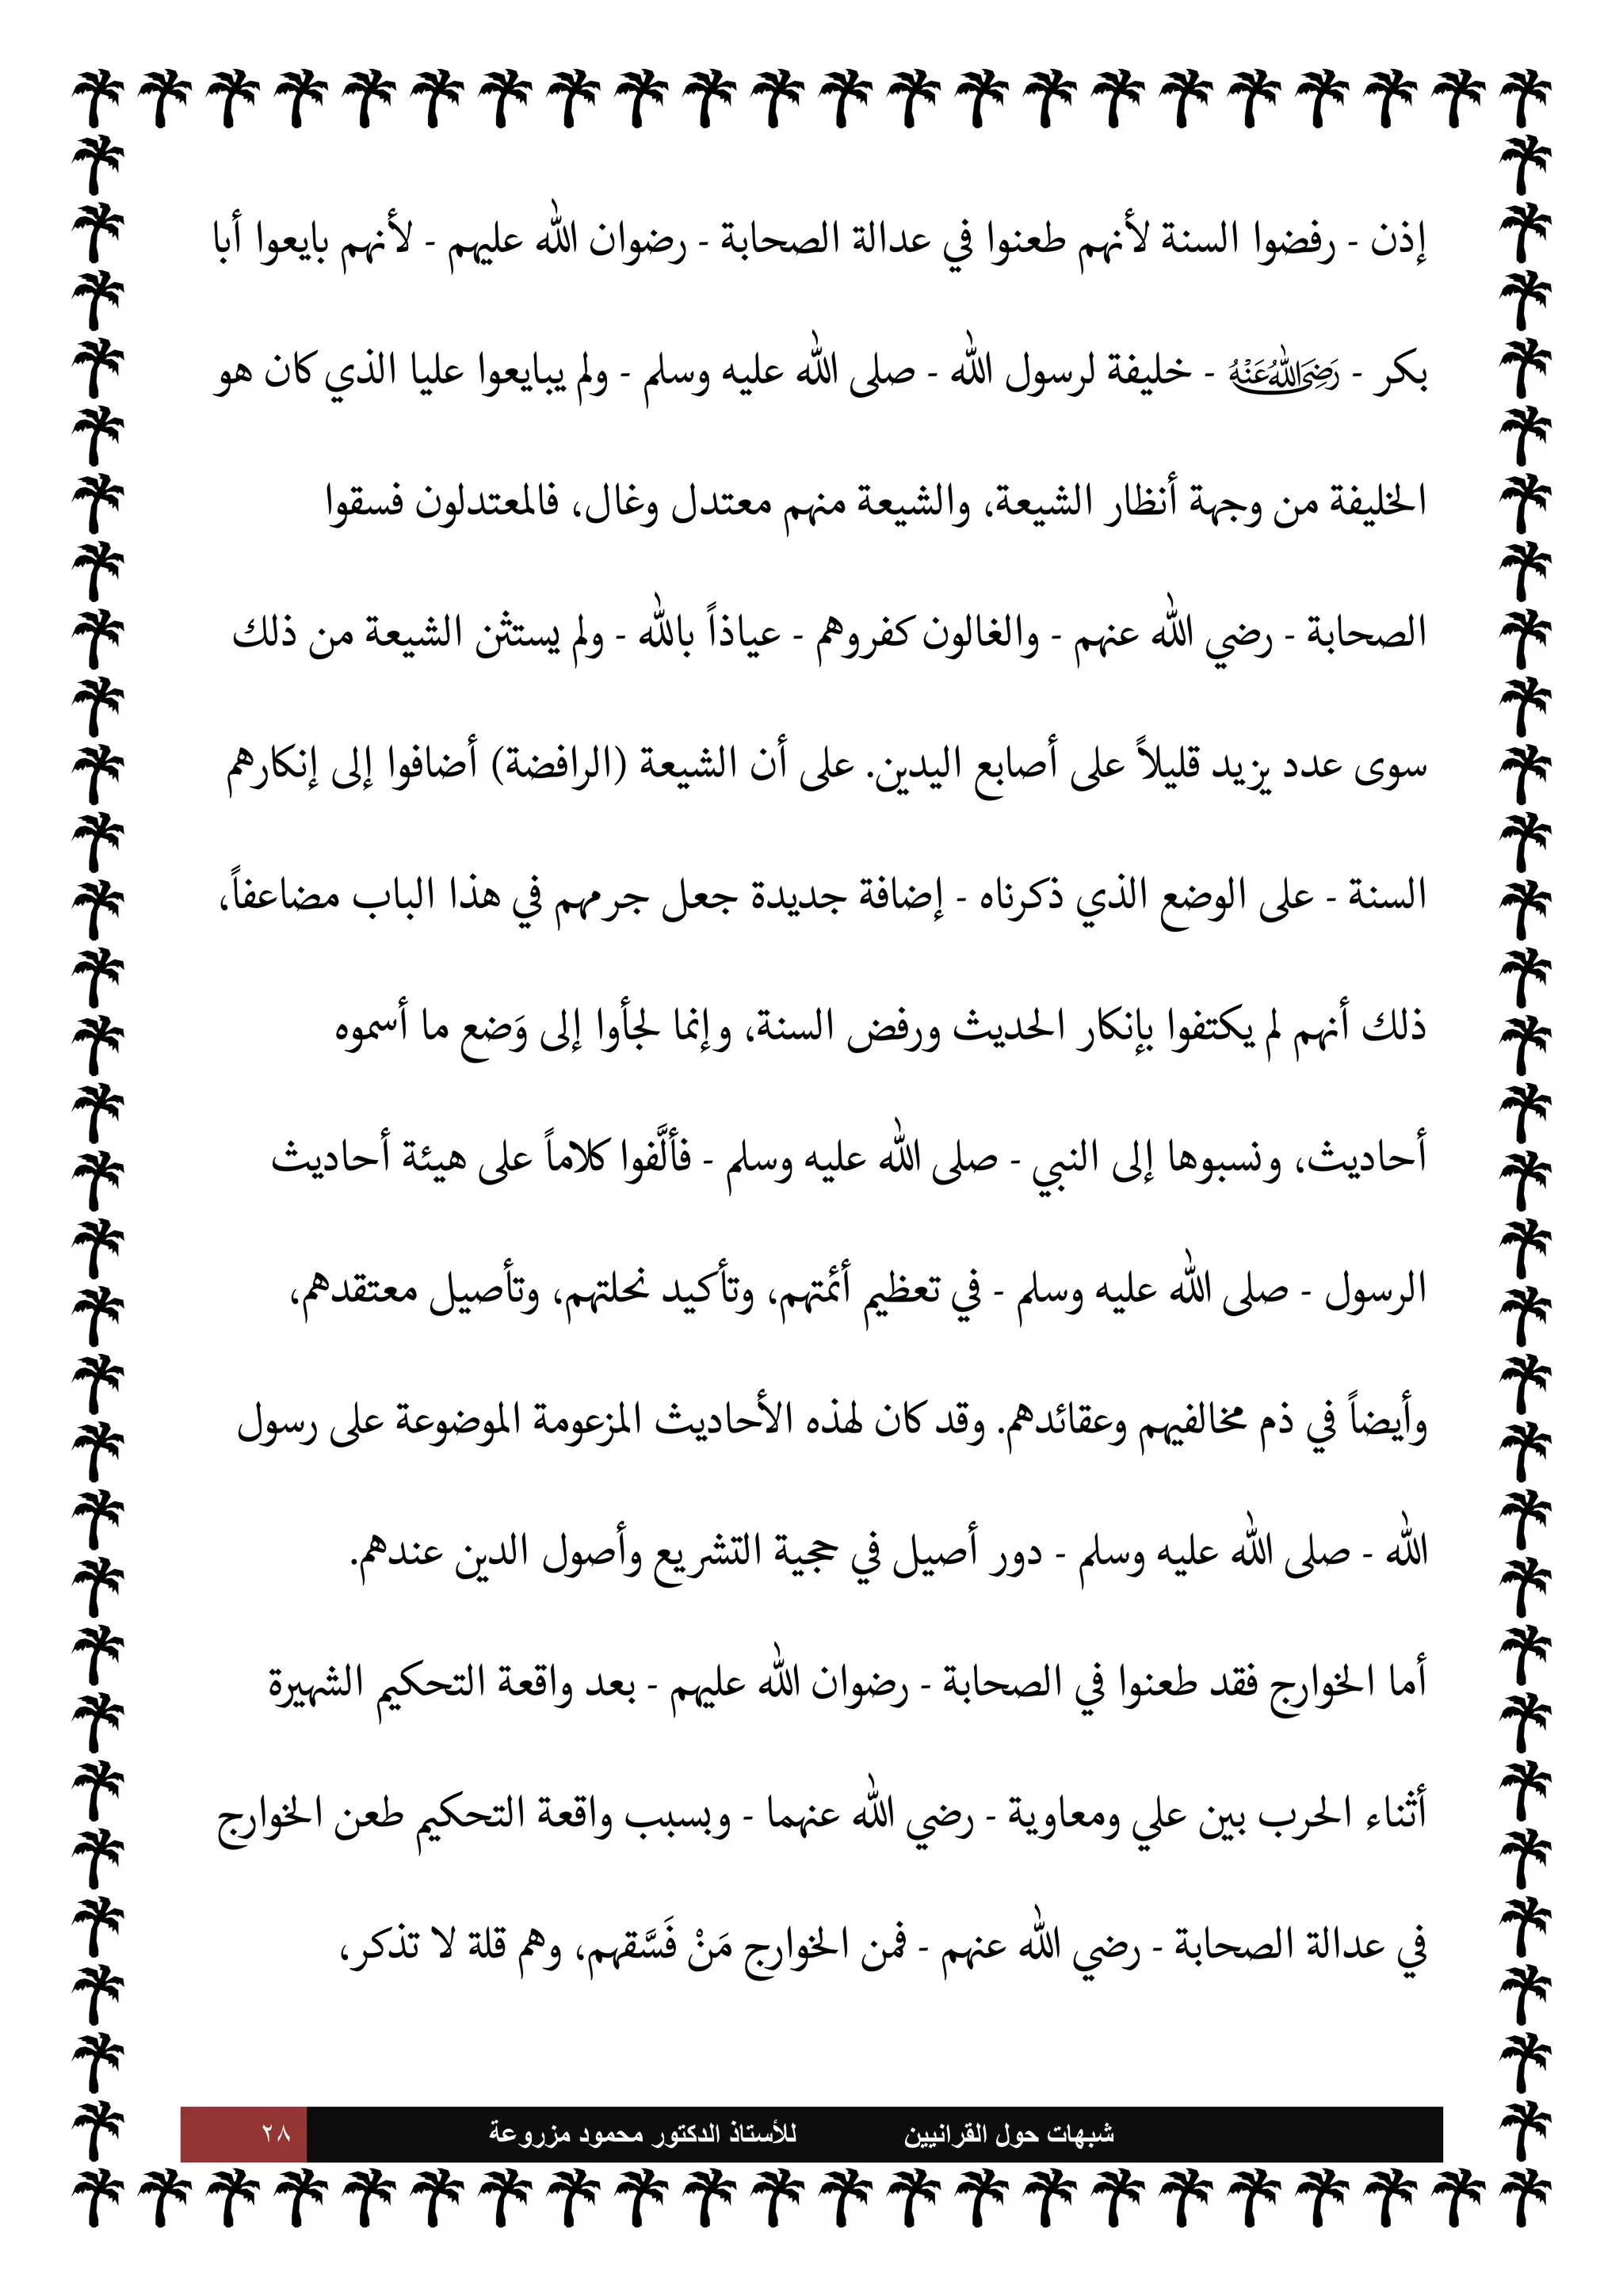 إذن - رفضوا السنة لأنهم طعنوا في عدالة الصحابة - رضوان الله عليهم - لأنهم بايعوا أبا
بكر - رَضِيَ اللَّهُ عَنْهُ - خليفة لرسول الله - صلى الله عليه وسلم - ولم يبايعوا عليا الذي كان هو
الخليفة من وجهة أنظار الشيعة، والشيعة منهم معتدل وغال، فالمعتدلون فسقوا
الصحابة - رضي الله عنهم - والغالون كفروهم - عياذاً بالله - ولم يستثن الشيعة من ذلك
سوى عدد يزيد قليلاً على أصابع اليدين. على أن الشيعة (الرافضة) أضافوا إلى إنكارهم
السنة - على الوضع الذي ذكرناه - إضافة جديدة جعل جرمهم في هذا الباب مضاعفاً،
ذلك أنهم لم يكتفوا بإنكار الحديث ورفض السنة، وإنما لجأوا إلى وَضع ما أسموه
أحاديث، ونسبوها إلى النبي - صلى الله عليه وسلم - فألَّفوا كلاماً على هيئة أحاديث
الرسول - صلى الله عليه وسلم - في تعظيم أئمتهم، وتأكيد نحلتهم، وتأصيل معتقدهم،
وأيضاً في ذم مخالفيهم وعقائدهم. وقد كان لهذه الأحاديث المزعومة الموضوعة على رسول
الله - صلى الله عليه وسلم - دور أصيل في حجية التشريع وأصول الدين عندهم.
أما الخوارج فقد طعنوا في الصحابة - رضوان الله عليهم - بعد واقعة التحكيم الشهيرة
أثناء الحرب بين علي ومعاوية - رضي الله عنهما - وبسبب واقعة التحكيم طعن الخوارج
في عدالة الصحابة - رضي الله عنهم - فمن الخوارج مَنْ فَسَّقهم، وهم قلة لا تذكر،
شبهات حول القرانيين للأستاذ الدكتور محمود مزروعة ٢٨